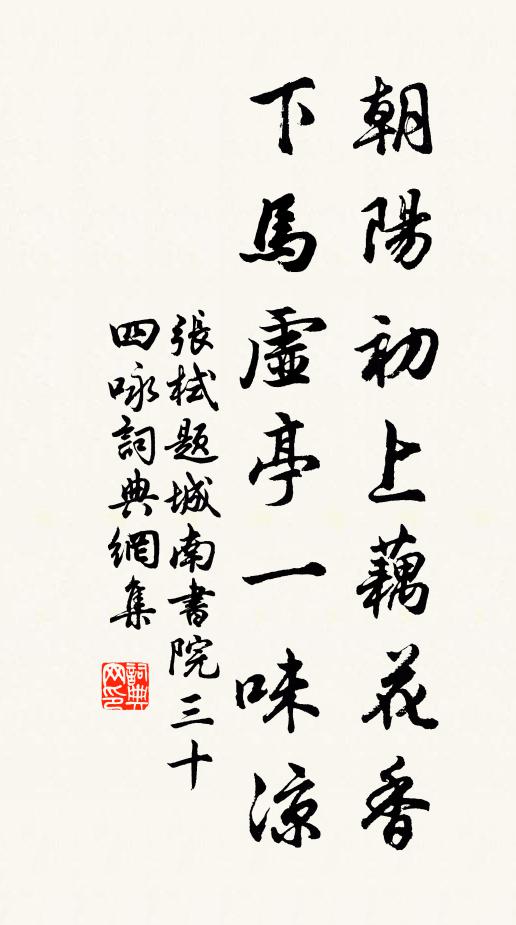 朝陽初上藕花香
下馬虛亭一味凉
張栻题城南書院三十
四咏詞典網集
詞典
网印